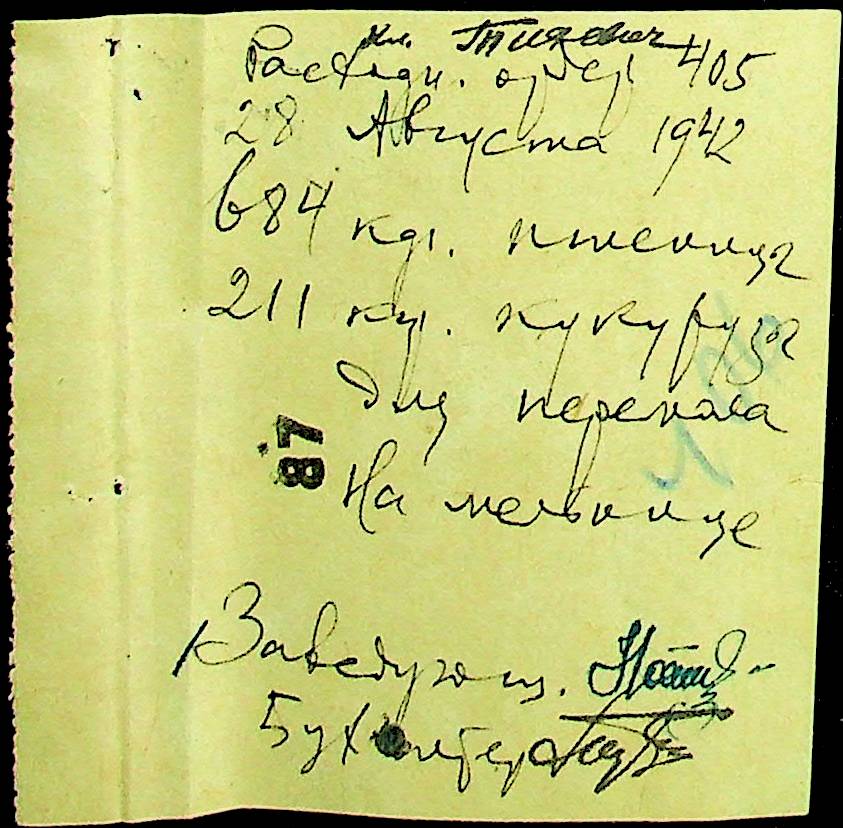 Расходн. ордер 405
28 Августа 1942
684 кгр. пшеница
211 кгр. кукуруза
Для перемола
87
На мельнице
Заведующ.
Бухгалтер